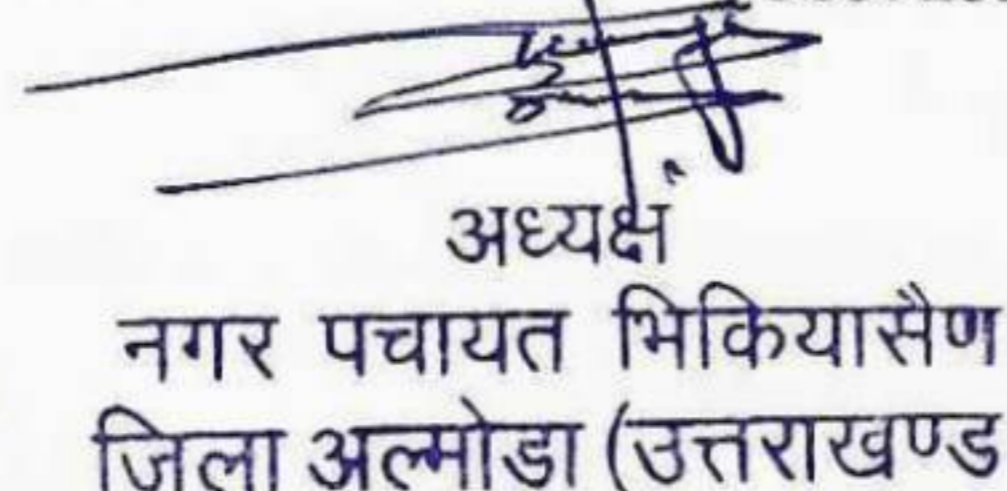 अध्यक्ष
नगर पचायत भिकियासैण
जिला अल्मोडा (उत्तराखण्ड